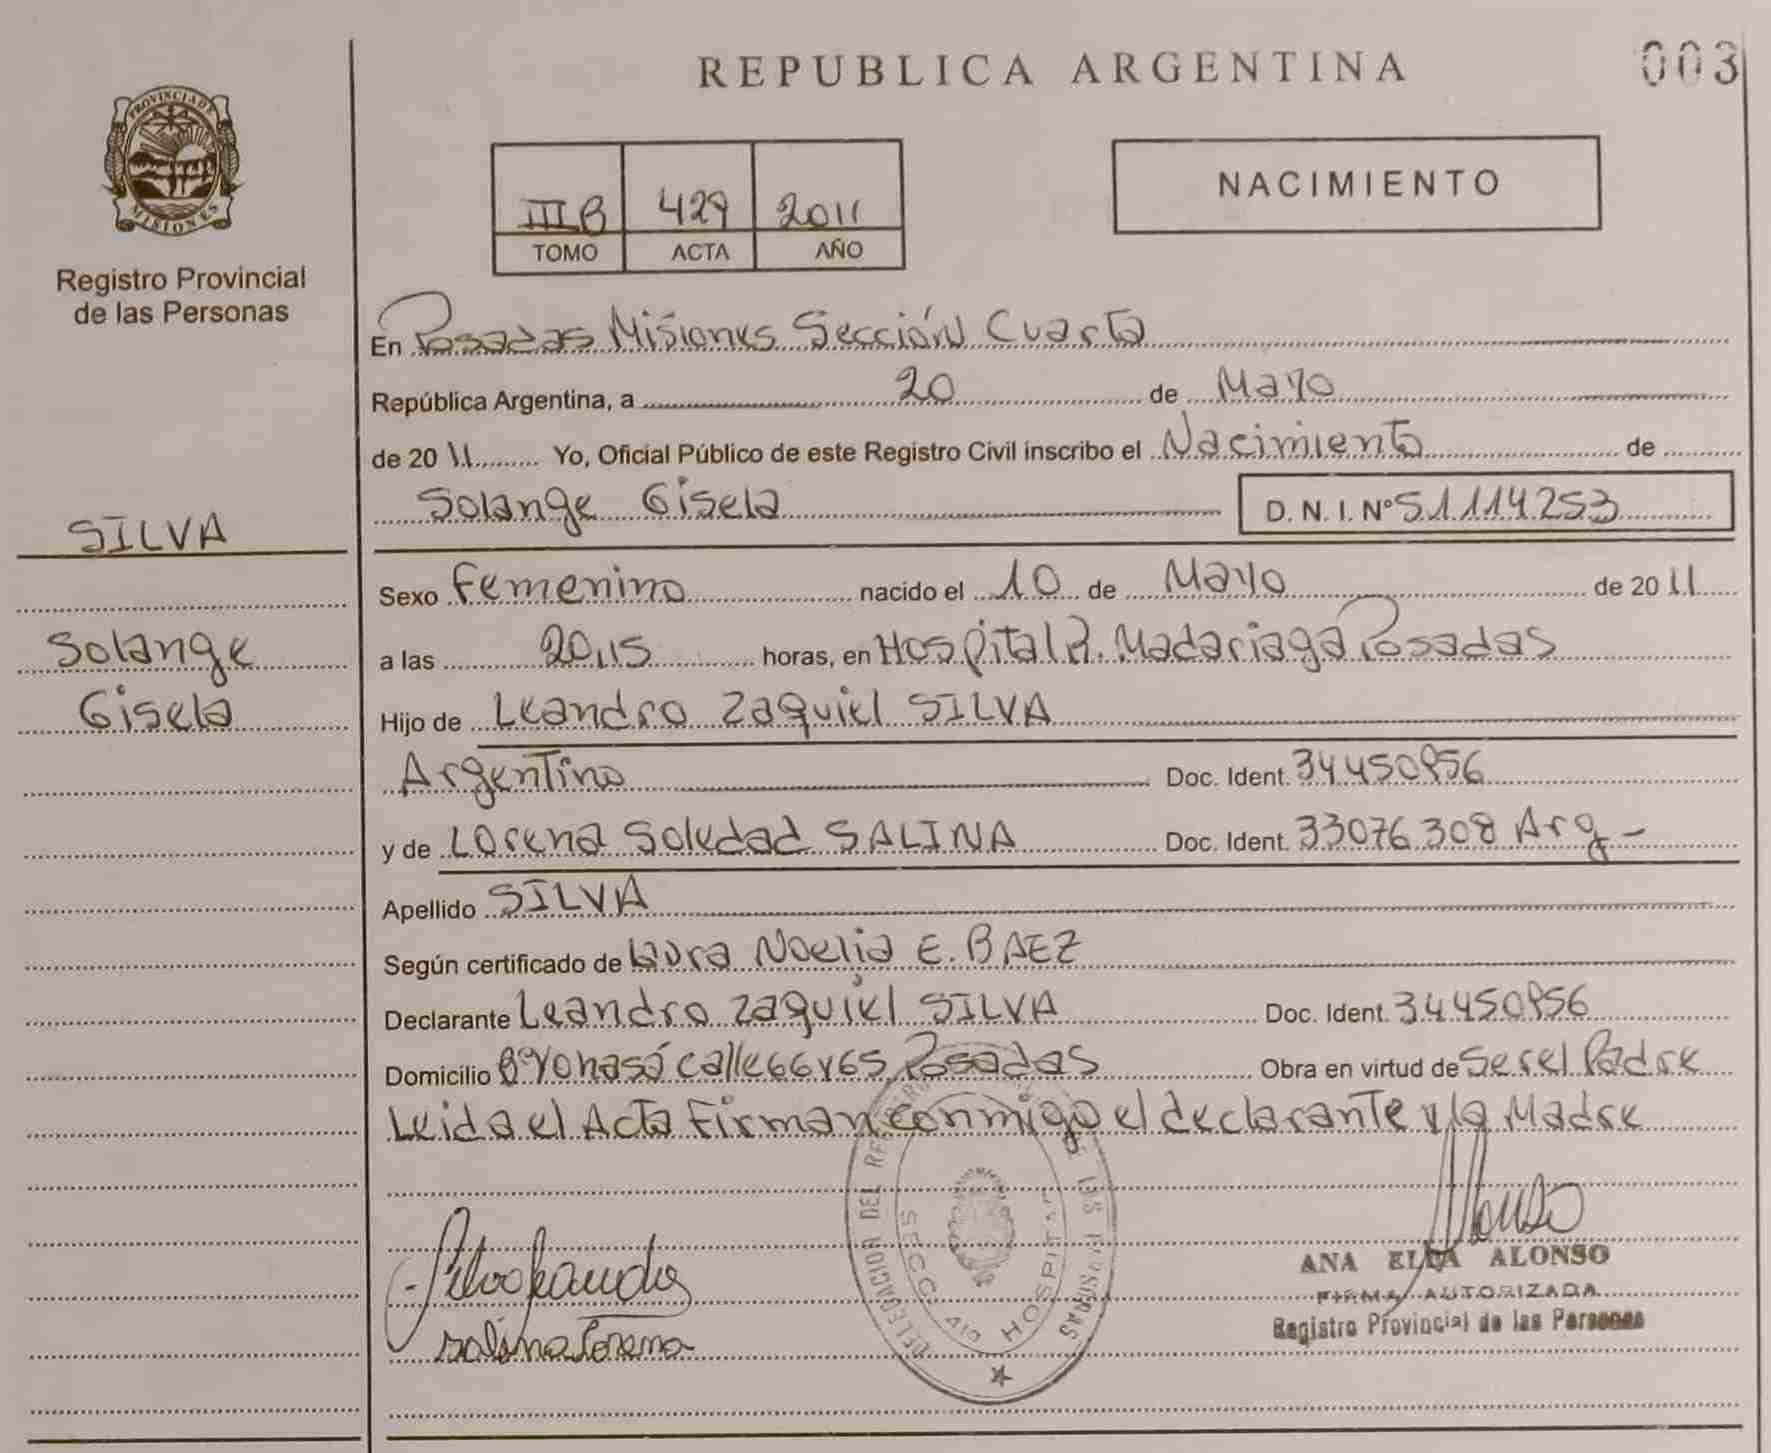 REPUBLICA ARGENTINA
003
PROVINCIA DE
MISIONES
Registro Provincial
de las Personas
III B 429 2011
TOMO ACTA AÑO
NACIMIENTO
En Posadas Misiones Sección Cuarta
República Argentina, a 20 de Mayo
de 2011 Yo, Oficial Público de este Registro Civil inscribo el Nacimiento de
Solange Gisela D. N. I. Nº 51114253
SILVA
Solange
Gisela
Sexo Femenino nacido el 10 de Mayo de 2011
a las 20,15 horas, en Hospital R. Madariaga Posadas
Hijo de Leandro Zaquiel SILVA
Argentino Doc. Ident. 34450956
y de Lorena Soledad SALINA Doc. Ident. 33076308 Arg -
Apellido SILVA
Según certificado de Laura Noelia E. BAEZ
Declarante Leandro Zaquiel SILVA Doc. Ident. 34450956
Domicilio Bº Yohasá calle 66 y 65 Posadas Obra en virtud de Ser el Padre
Leida el Acta Firman conmigo el declarante y la Madre
Silva Leandro
Salina Lorena
DELEGACION DEL
SECC 4ta HOSPITAL
Alonso
ANA ELBA ALONSO
FIRMA AUTORIZADA
Registro Provincial de las Personas